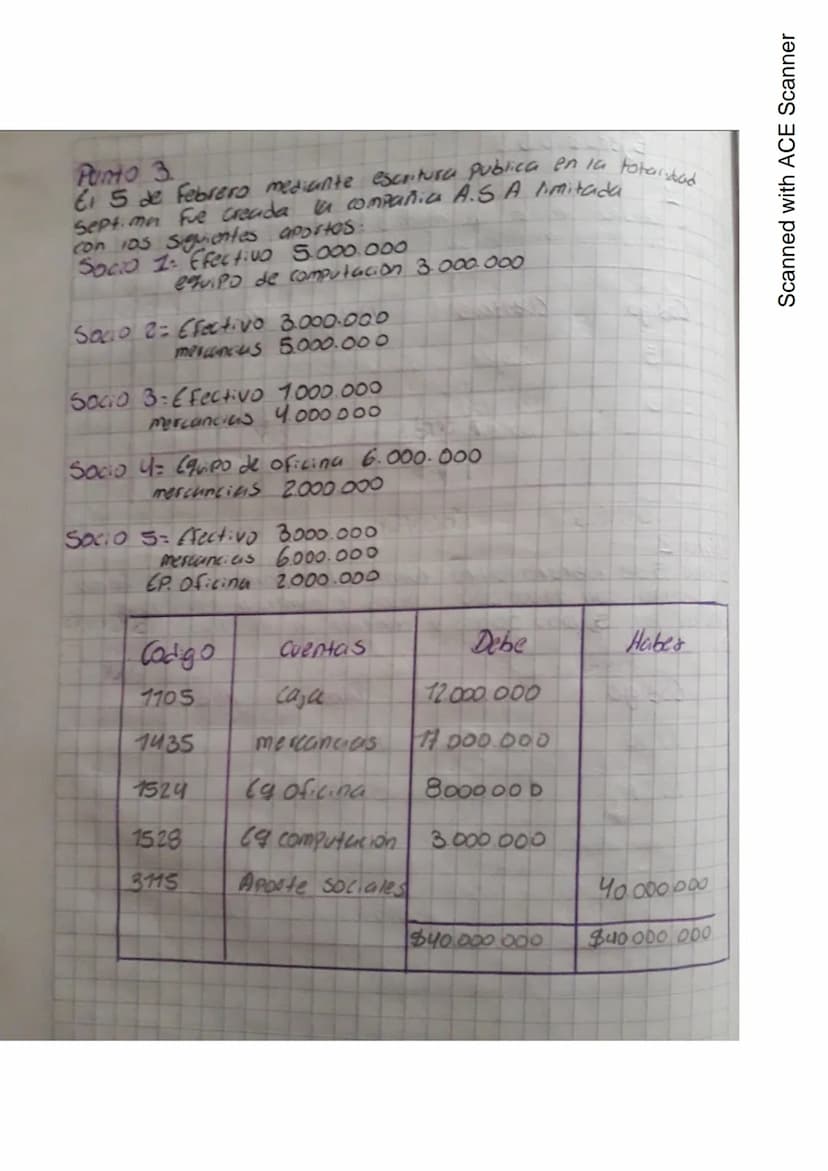 Punto 3
El 5 de Febrero mediante escritura publica en la
Sept. mn fue creada la compañia A.S A limitada
con los siguientes aportos:
Socio 1= Efectivo 5.000.000
equipo de computacion 3.000.000
Socio 2= Efectivo 3.000.000
mercancias 5.000.000
Socio 3= Efectivo 1000.000
mercancias 4.000.000
Socio 4= Equipo de oficina 6.000.000
mercancias 2.000.000
Socio 5= Efectivo 3.000.000
mercancias 6.000.000
EP. Oficina 2.000.000
Codigo Cuentas Debe Haber
1105 Caja 12000.000
1435 mercancias 17 000.000
1524 Eq oficina 8000000
1528 Eq computacion 3.000.000
3115 Aporte sociales 40 000.000
$40.000.000 $40 000.000
Scanned with ACE Scanner